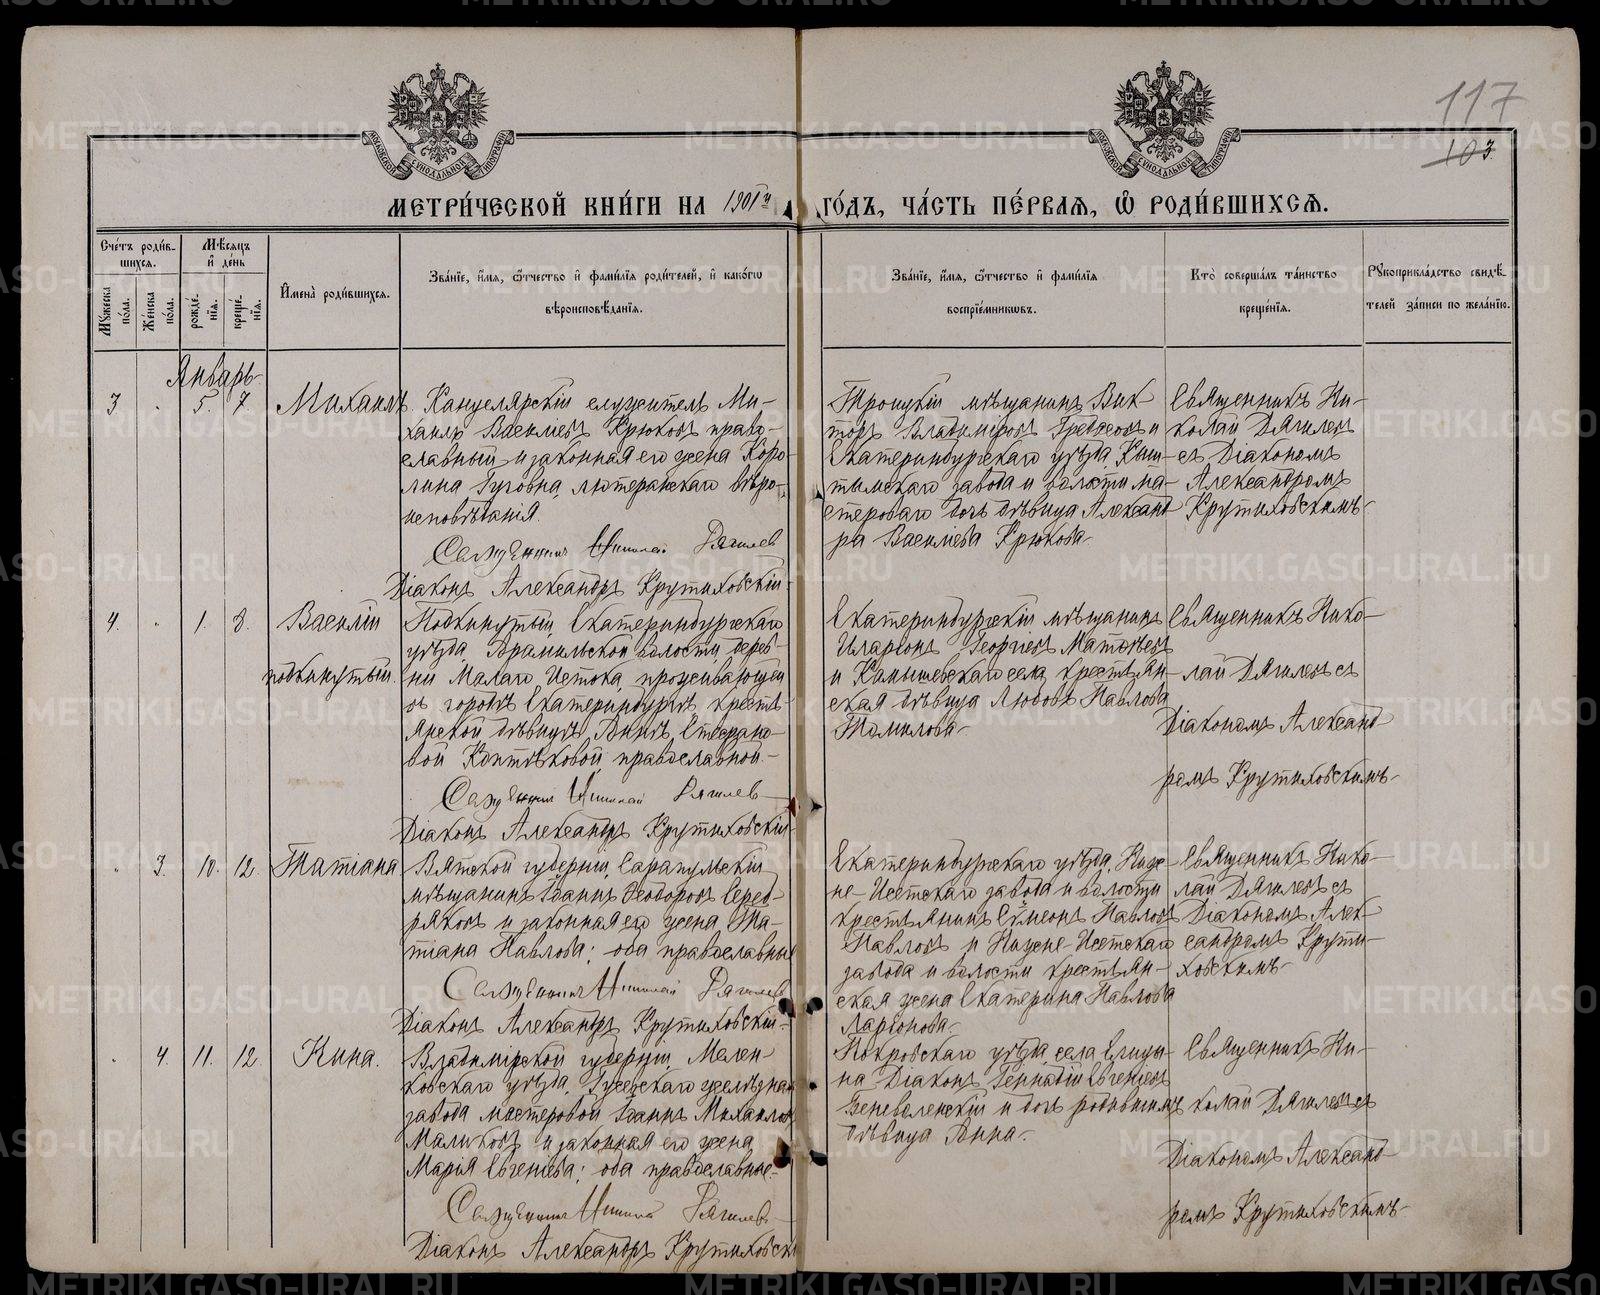 117
103
МОСКОВСКОЙ СѴНОДАЛЬНОЙ ТИПОГРАФІИ
МОСКОВСКОЙ СѴНОДАЛЬНОЙ ТИПОГРАФІИ
МЕТРИ́ЧЕСКОЙ КНИ́ГИ НА 1901й ГО́ДЪ, ЧА́СТЬ ПЕ́РВАЯ, Ѽ РОДИ́ВШИХСЯ.
Сче́тъ роди́в-
шихся.
Мѣсяцъ
и҆ де́нь
Му́жеска по́ла.
Же́нска по́ла.
рожде́-нїя.
креще́-нїя.
И҆мена̀ роди́вшихся.
Зва́нїе, и҆́мя, ѻ҆́тчество и҆ фами́лїя роди́телей, и҆ како́гѡ
вѣроисповѣ́данїя.
Зва́нїе, и҆́мя, ѻ҆́тчество и҆ фами́лїя
воспрїе́мникѡвъ.
Кто̀ соверша́лъ та́инство
креще́нїя.
Рꙋкоприкла́дство свидѣ́-
телей за́писи по жела́нїю.
Январь
3 5. 7. Михаилъ.
Канцелярскій служитель Ми-
хаилъ Васильевъ Крюковъ право-
славный и законная его жена Каро-
лина Гуговна, лютеранскаго вѣро-
исповѣданія.
Священникъ Николай Дягилев
Діаконъ Александръ Крутиховскій
Троицкій мѣщанинъ Вик-
торъ Владиміровъ и
Екатеринбургскаго уѣзда, Кыш-
тымскаго завода и волости ма-
стероваго дочь дѣвица Александ-
ра Васильева Крюкова
Священникъ Ни-
колай Дягилевъ
съ Діакономъ
Александромъ
Крутиховскимъ
4. 1. 8. Василій
подкинутый.
Подкинутый, Екатеринбургскаго
уѣзда, Арамильской волости, дерев-
ни Малаго Истока, проживающей
въ городѣ Екатеринбургѣ кресть-
янской дѣвицѣ Аннѣ Стефано-
вой Коптяковой, православной.
Священникъ Николай Дягилев
Діаконъ Александръ Крутиховскій
Екатеринбургскій мѣщанинъ
Иларіонъ Георгіевъ Матвѣевъ
и Камышевскаго села, крестьян-
ская дѣвица Любовь Павлова
Томилова
Священникъ Нико-
лай Дягилевъ съ
Діакономъ Александ-
ромъ Крутиховскимъ
3. 10. 12. Татіана
Вятской губерніи, Сарапульскій
мѣщанинъ Іоаннъ Ѳеодоровъ Сереб-
ряковъ и законная его жена Та-
тіана Павлова; оба православные
Священникъ Николай Дягилев
Діаконъ Александръ Крутиховскій
Екатеринбургскаго уѣзда, Ниж-
не-Исетскаго завода и волости
крестьянинъ Сѵмеонъ Павловъ
Павловъ и Нижне-Исетскаго
завода и волости крестьян-
ская жена Екатерина Павлова
Ларіонова
Священникъ Нико-
лай Дягилевъ съ
Діакономъ Алек-
сандромъ Крути-
ховскимъ
4. 11. 12. Нина.
Владимірской губерніи, Мелен-
ковскаго уѣзда, Гусевскаго желѣзнаго
завода мастеровой Іоаннъ Михаиловъ
Маликовъ и законная его жена
Марія Евгеніева; оба православные
Священникъ Николай Дягилев
Діаконъ Александръ Крутиховскій
Покровскаго уѣзда, села
на Діаконъ Геннадій Евгеніевъ
Беневоленскій и дочь родившимъ
дѣвица Анна.
Священникъ Ни-
колай Дягилевъ съ
Діакономъ Александ-
ромъ Крутиховскимъ
METRIKI.GASO-URAL.RU